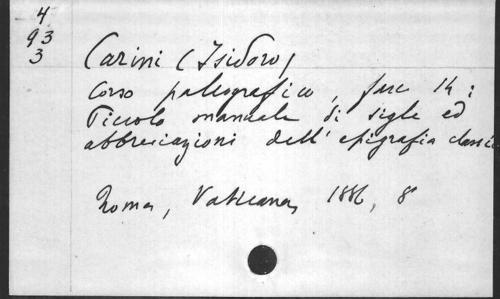 4
93
3
Carini (Isidoro)
Corso paleografico, fasc 14:
Piccolo manuale di sigle ed
abbreviazioni dell' epigrafia classica
Roma, Vaticana, 1886, 8°